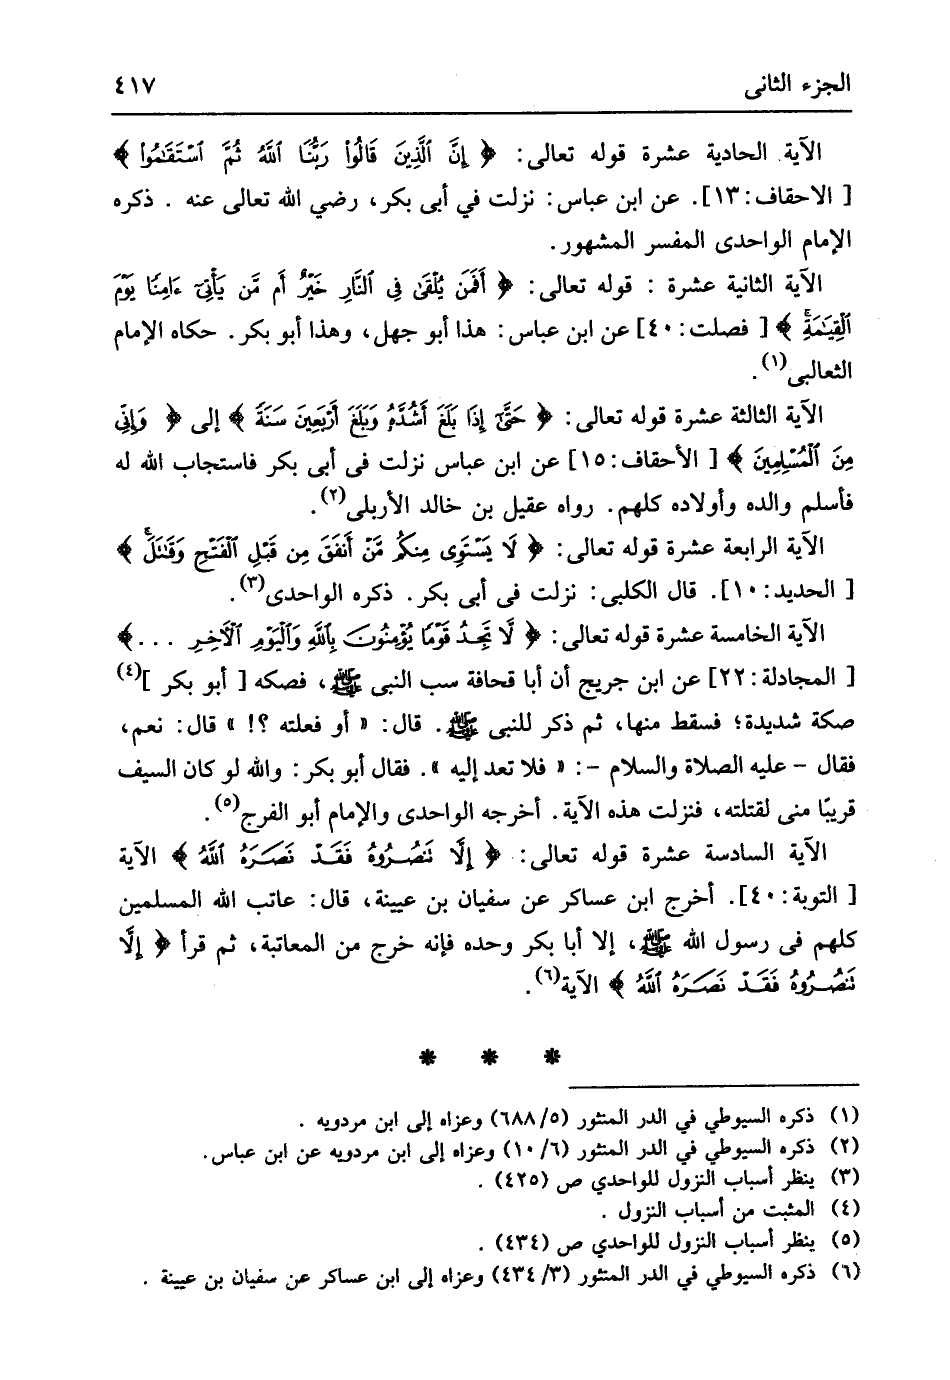 الجزء الثانى ٤١٧
الآية الحادية عشرة قوله تعالى: ﴿ إِنَّ ٱلَّذِينَ قَالُوا۟ رَبُّنَا ٱللَّهُ ثُمَّ ٱسْتَقَـٰمُوا۟ ﴾
[ الاحقاف: ١٣]. عن ابن عباس: نزلت في أبى بكر، رضي الله تعالى عنه . ذكره
الإمام الواحدى المفسر المشهور.
الآية الثانية عشرة : قوله تعالى: ﴿ أَفَمَن يُلْقَىٰ فِى ٱلنَّارِ خَيْرٌ أَم مَّن يَأْتِىٓ ءَامِنًا يَوْمَ
ٱلْقِيَـٰمَةِ ﴾ [ فصلت: ٤٠] عن ابن عباس: هذا أبو جهل، وهذا أبو بكر. حكاه الإمام
الثعالبى(١).
الآية الثالثة عشرة قوله تعالى: ﴿ حَتَّىٰٓ إِذَا بَلَغَ أَشُدَّهُۥ وَبَلَغَ أَرْبَعِينَ سَنَةً ﴾ إلى ﴿ وَإِنِّى
مِنَ ٱلْمُسْلِمِينَ ﴾ [ الأحقاف: ١٥] عن ابن عباس نزلت فى أبى بكر فاستجاب الله له
فأسلم والده وأولاده كلهم. رواه عقيل بن خالد الأربلى(٢).
الآية الرابعة عشرة قوله تعالى: ﴿ لَا يَسْتَوِى مِنكُم مَّنْ أَنفَقَ مِن قَبْلِ ٱلْفَتْحِ وَقَـٰتَلَ ﴾
[ الحديد: ١٠]. قال الكلبى: نزلت فى أبى بكر. ذكره الواحدى(٣).
الآية الخامسة عشرة قوله تعالى: ﴿ لَّا تَجِدُ قَوْمًا يُؤْمِنُونَ بِٱللَّهِ وَٱلْيَوْمِ ٱلْـَٔاخِرِ ...﴾
[ المجادلة: ٢٢] عن ابن جريج أن أبا قحافة سب النبى ﷺ، فصكه [ أبو بكر ](٤)
صكة شديدة؛ فسقط منها، ثم ذكر للنبى ﷺ. قال: « أو فعلته ؟! » قال: نعم،
فقال – عليه الصلاة والسلام –: « فلا تعد إليه ». فقال أبو بكر: والله لو كان السيف
قريبًا منى لقتلته، فنزلت هذه الآية. أخرجه الواحدى والإمام أبو الفرج(٥).
الآية السادسة عشرة قوله تعالى: ﴿ إِلَّا تَنصُرُوهُ فَقَدْ نَصَرَهُ ٱللَّهُ ﴾ الآية
[ التوبة: ٤٠]. أخرج ابن عساكر عن سفيان بن عيينة، قال: عاتب الله المسلمين
كلهم فى رسول الله ﷺ، إلا أبا بكر وحده فإنه خرج من المعاتبة، ثم قرأ ﴿ إِلَّا
تَنصُرُوهُ فَقَدْ نَصَرَهُ ٱللَّهُ ﴾ الآية(٦).
* * *
(١) ذكره السيوطي في الدر المنثور (٥/ ٦٨٨) وعزاه إلى ابن مردويه .
(٢) ذكره السيوطي في الدر المنثور (٦/ ١٠) وعزاه إلى ابن مردويه عن ابن عباس.
(٣) ينظر أسباب النزول للواحدي ص (٤٢٥) .
(٤) المثبت من أسباب النزول .
(٥) ينظر أسباب النزول للواحدي ص (٤٣٤) .
(٦) ذكره السيوطي في الدر المنثور (٣/ ٤٣٤) وعزاه إلى ابن عساكر عن سفيان بن عيينة .